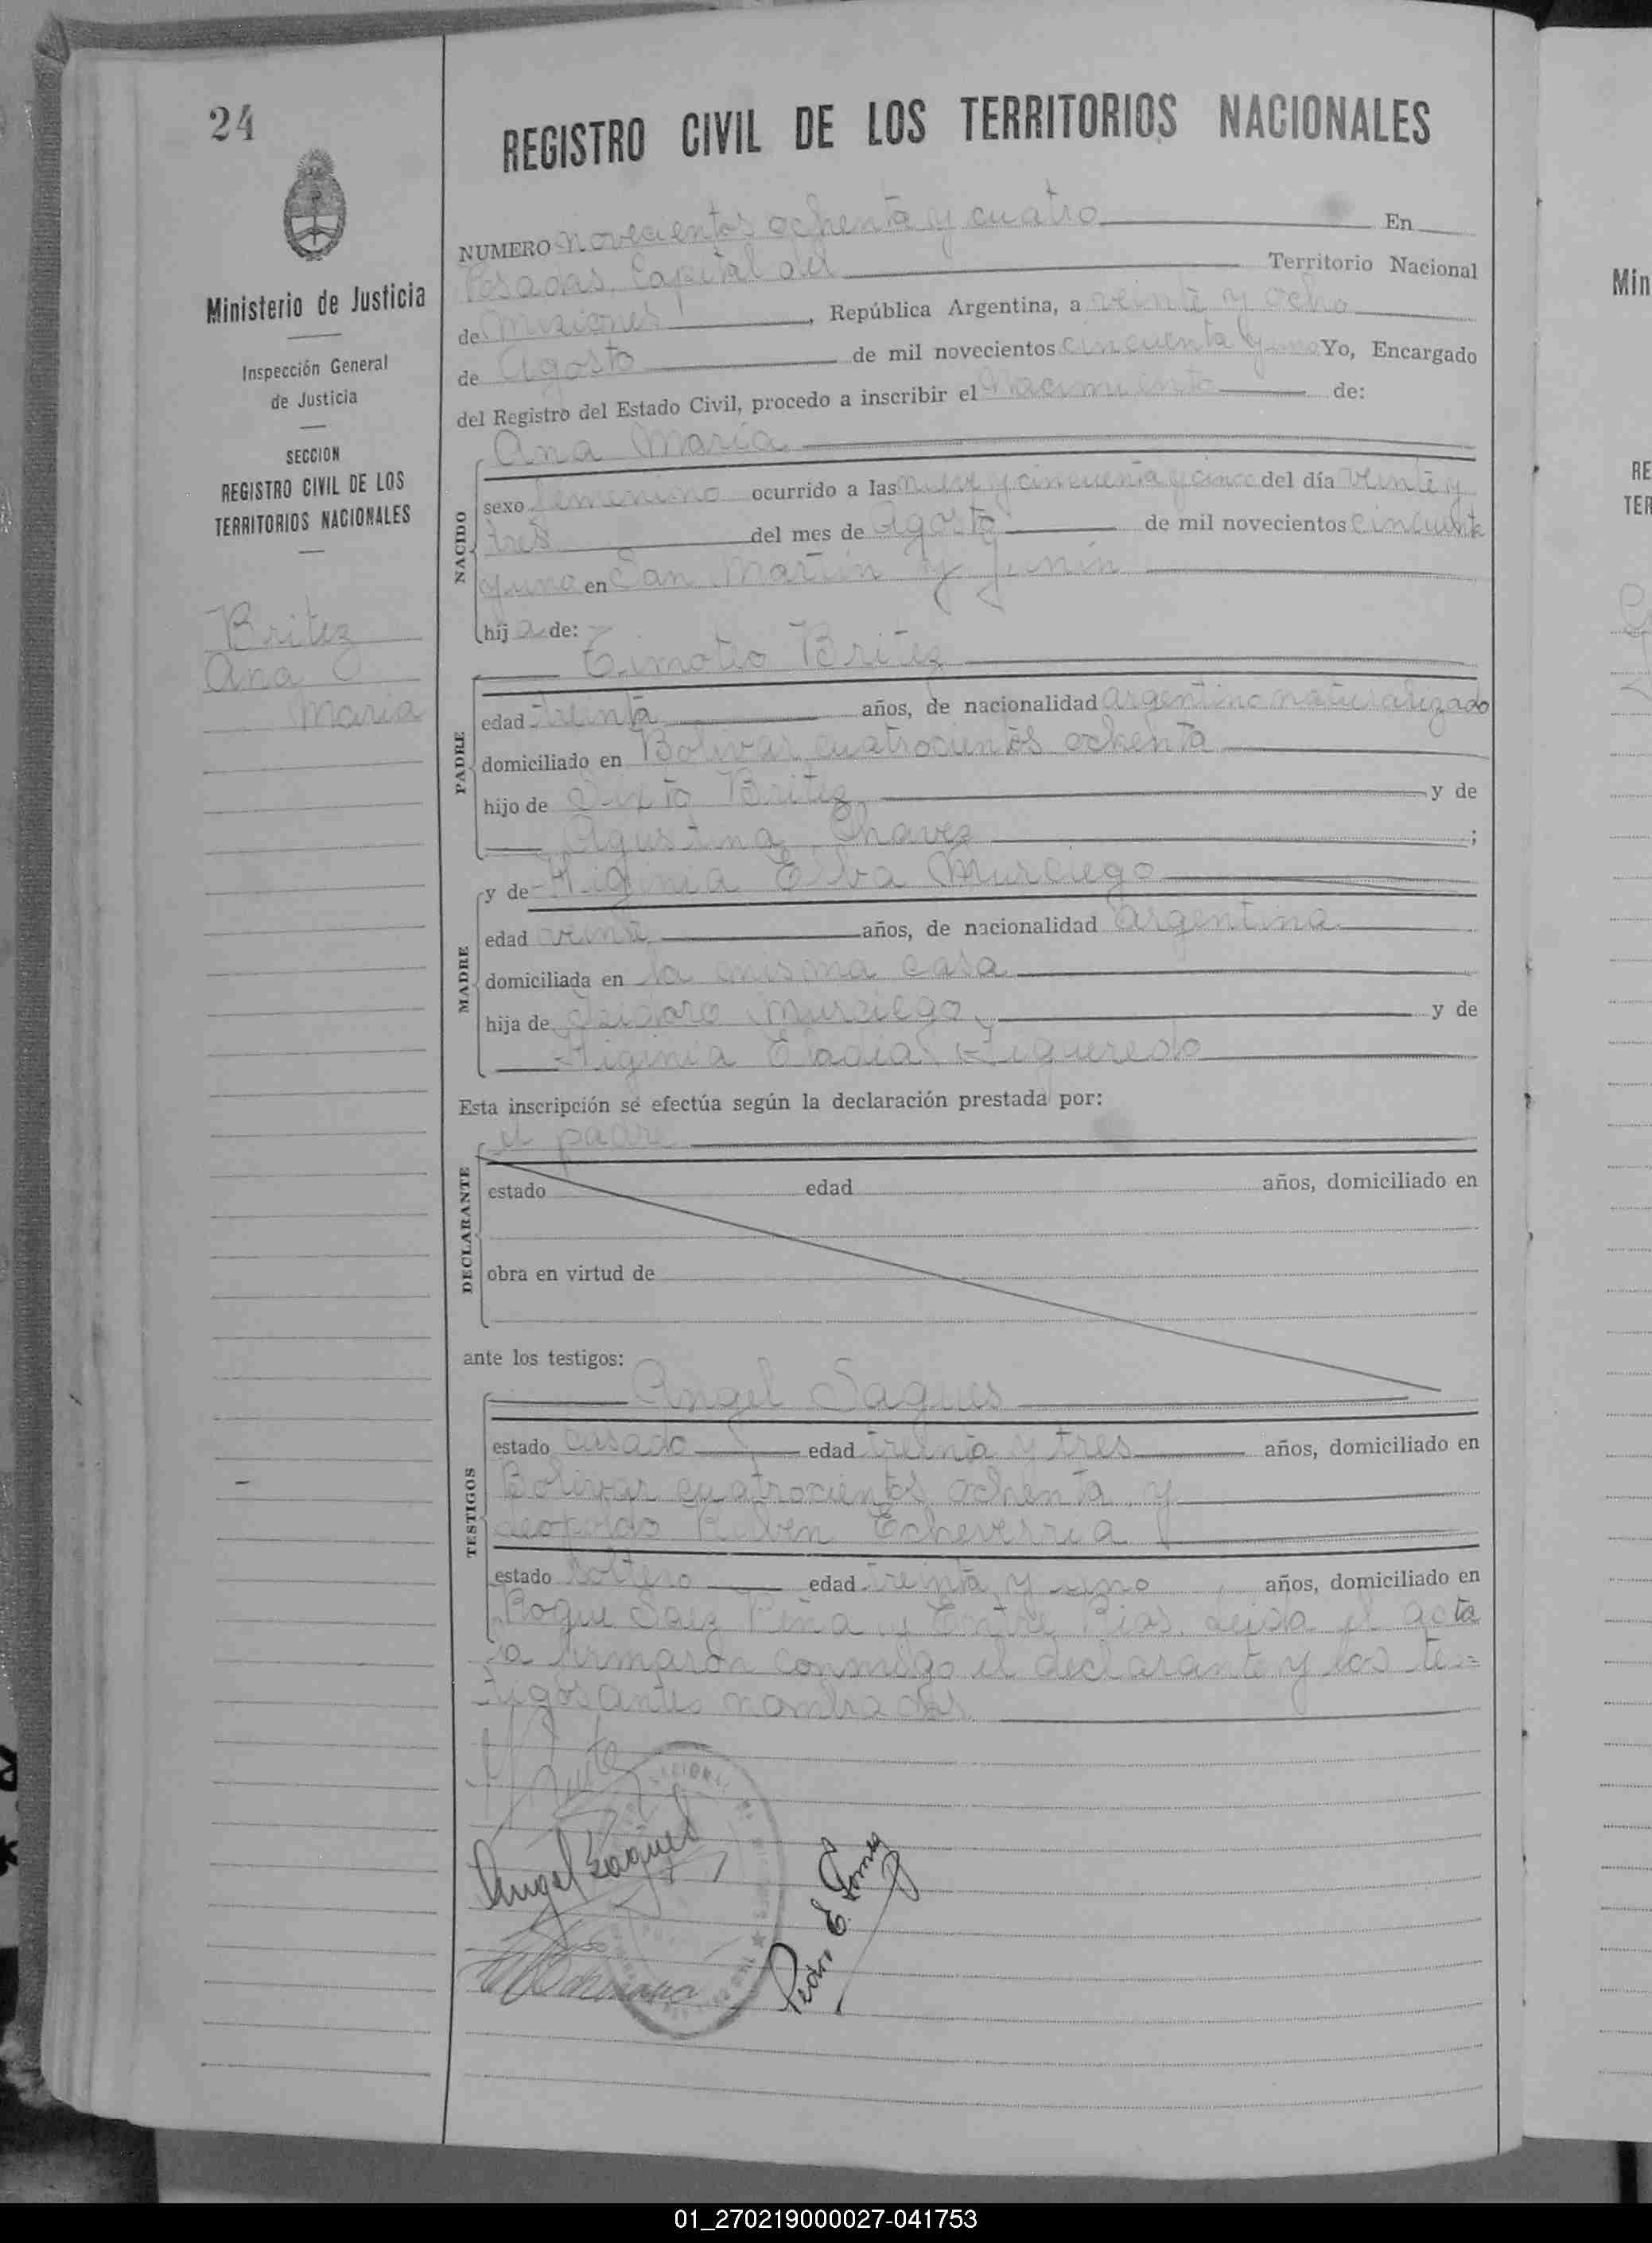 24
Ministerio de Justicia
Inspección General
de Justicia
SECCION
REGISTRO CIVIL DE LOS
TERRITORIOS NACIONALES
Britez
Ana
Maria
REGISTRO CIVIL DE LOS TERRITORIOS NACIONALES
NUMERO novecientos ochenta y cuatro En
Posadas, Capital del Territorio Nacional
de Misiones, República Argentina, a veinte y ocho
de Agosto de mil novecientos cincuenta y uno Yo, Encargado
del Registro del Estado Civil, procedo a inscribir el Nacimiento de:
Ana María
NACIDO
sexo femenino ocurrido a las nueve y cincuenta y cinco del día veinte y
tres del mes de Agosto de mil novecientos cincuenta
y uno en San Martín y Junín
hija de:
Timoteo Britez
PADRE
edad treinta años, de nacionalidad argentino naturalizado
domiciliado en Bolivar cuatrocientos ochenta
hijo de Sixto Britez y de
Agustina Chavez ;
y de Higinia Elva Murciego
MADRE
edad veinte años, de nacionalidad argentina
domiciliada en la misma casa
hija de Isidoro Murciego y de
Higinia Eladia Figueredo
Esta inscripción se efectúa según la declaración prestada por:
el padre
DECLARANTE
estado edad años, domiciliado en
obra en virtud de
ante los testigos:
Angel Sagues
TESTIGOS
estado casado edad treinta y tres años, domiciliado en
Bolivar cuatrocientos ochenta y
Leopoldo Ruben Echeverria
estado soltero edad treinta y uno años, domiciliado en
Roque Saez Peña y Entre Rios. Leida el acta
la firmaron conmigo el declarante y los tes=
tigos antes nombrados
Angel Sagues
Pedro E. Gomez
Min
RE
TER
01_270219000027-041753